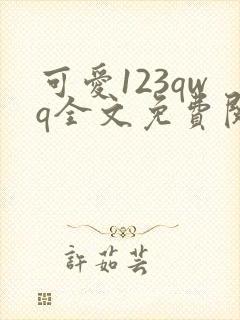 可愛123qw
q全文免費
許茹芸